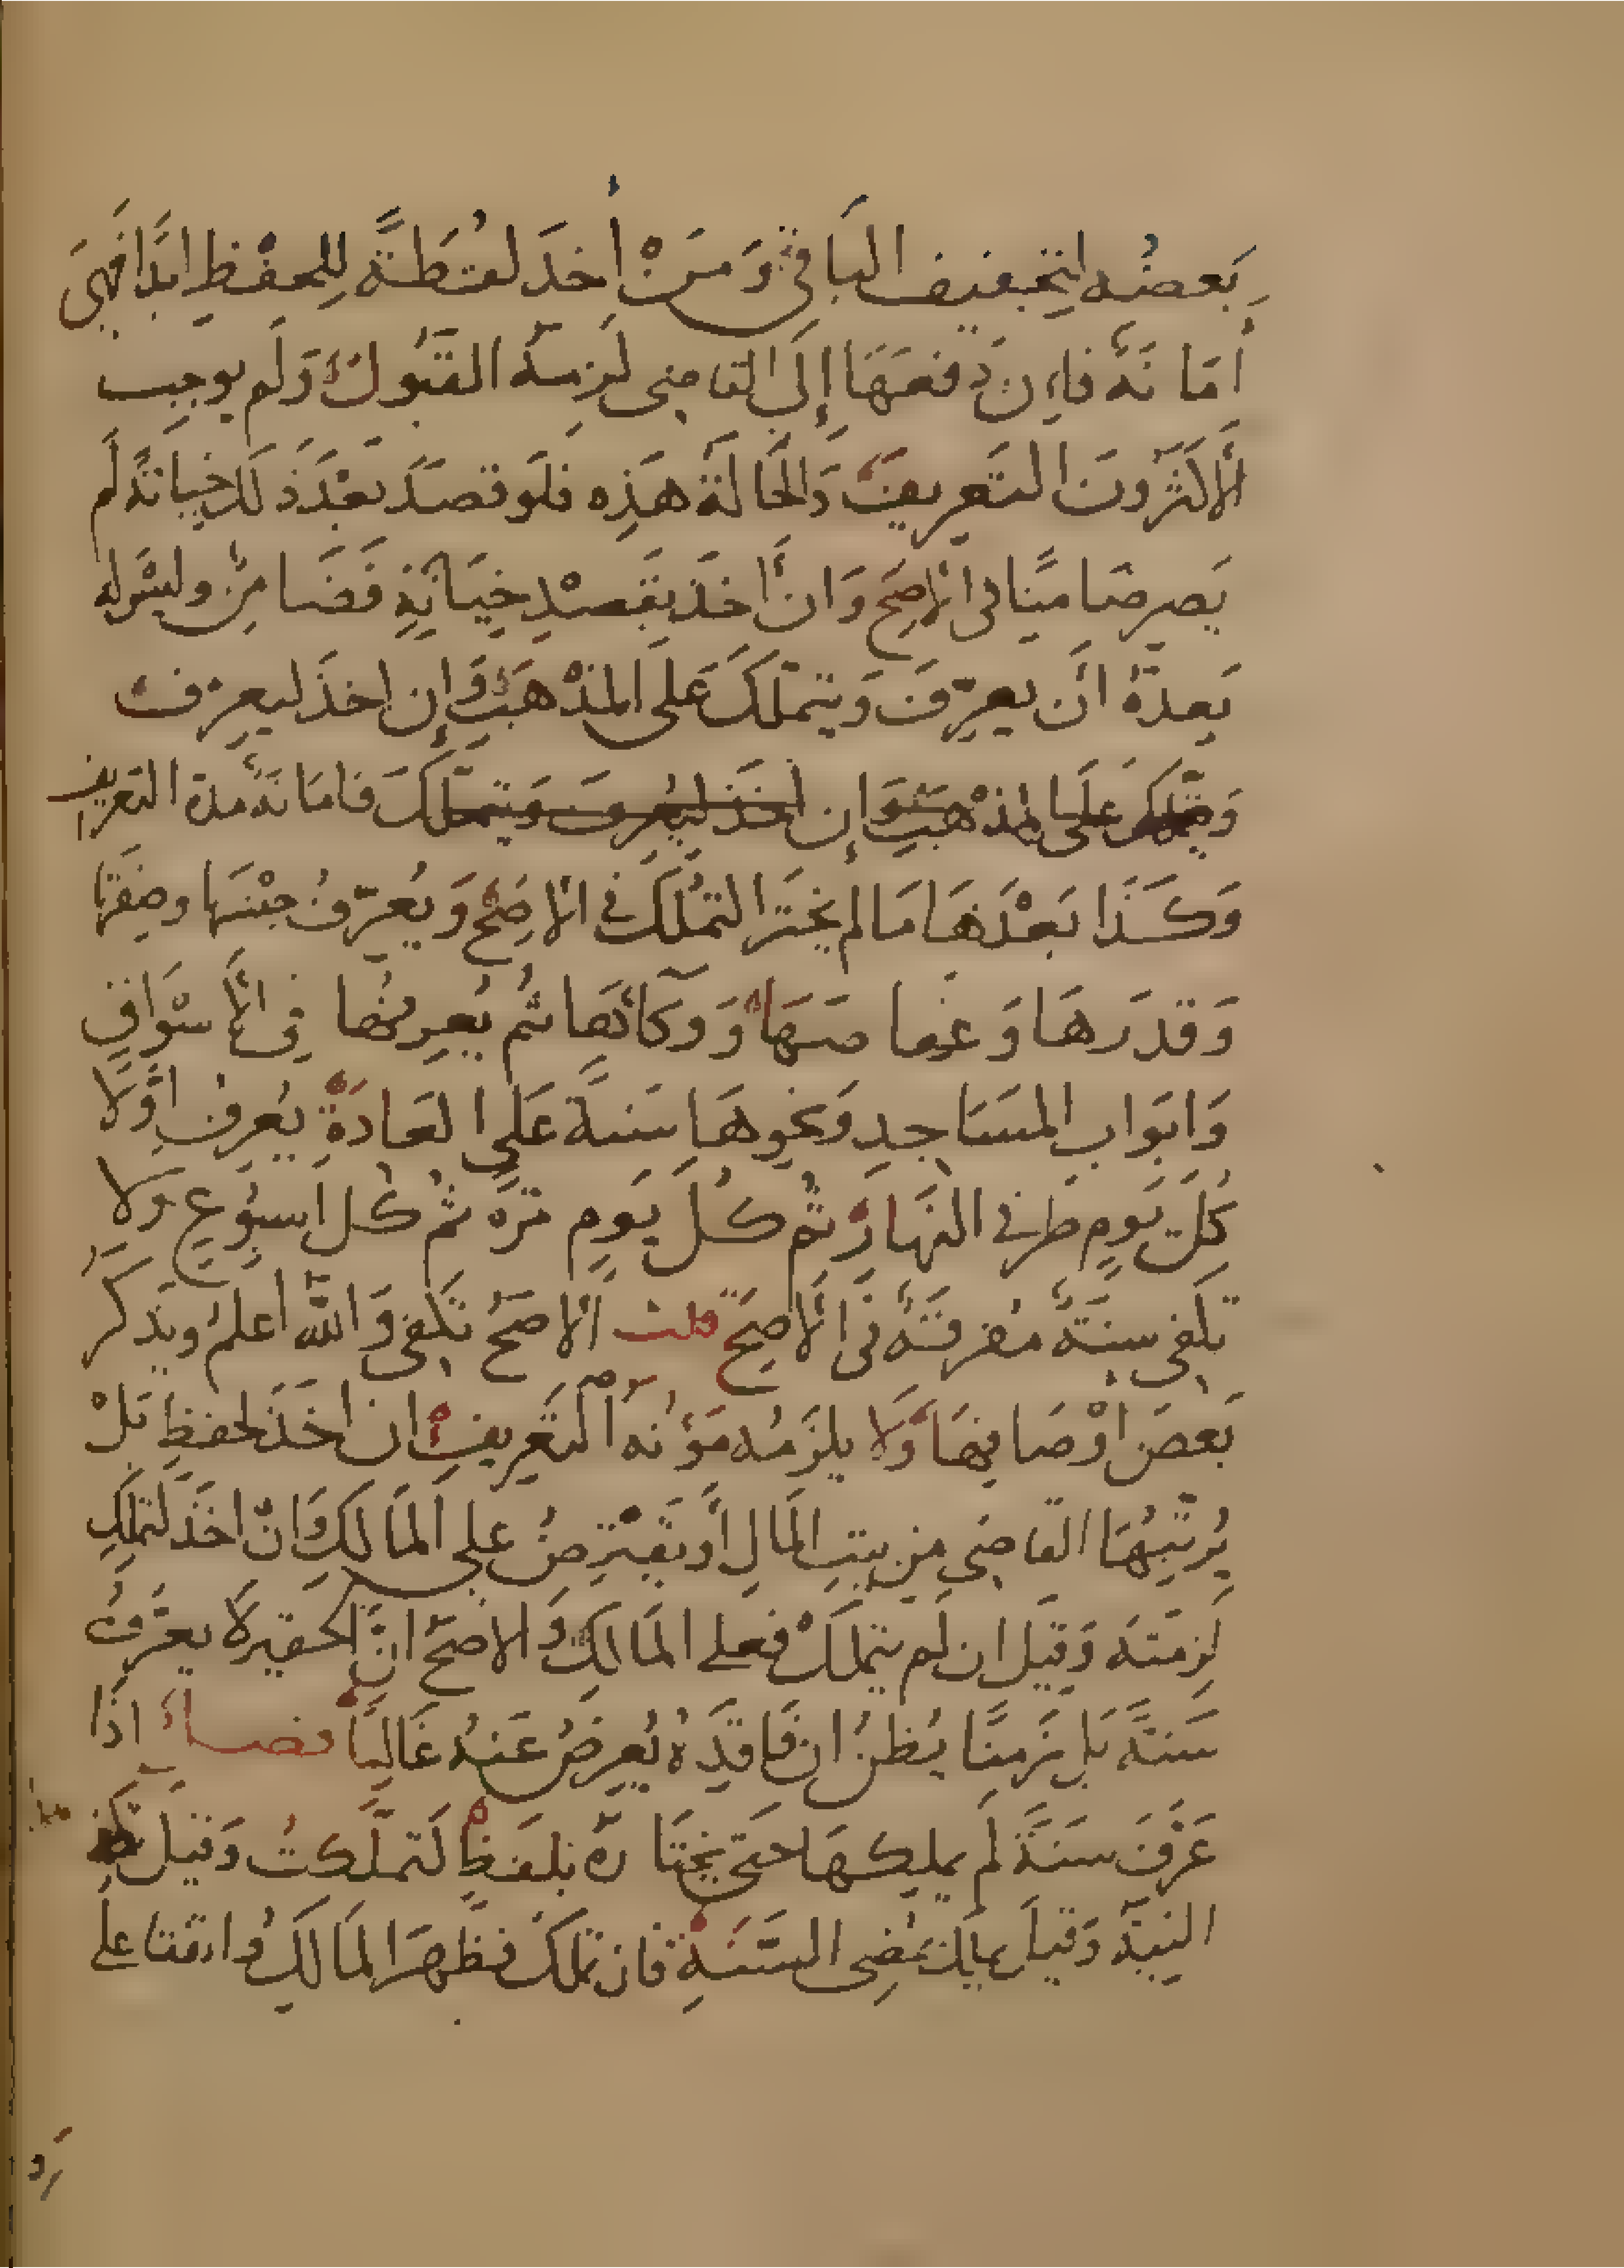 بَعضُه لتجفيف البَاقي وَمَنْ أخذَ لقطَةً لِلحفْظِ ابَدًا فَهيَ
أمَانَةٌ فاِن دَفعَهَا إلَى القاضِى لَزِمَهُ القَبُولُ وَلَم يوجِب
الأكثَرُونَ التَعرِيفَ وَالحَالَةُ هَذِه فلَو قصَدَ بَعْدَ ذَلكَ خِيَانَةً لَم
يَصِر ضَامِنًا فى الأصَحِّ وَان أخَذ بقَصْدِ خِيَانَةٍ فَضَامِنٌ وليسَ لهُ
بَعدَهُ أن يعرِّفَ وَيتمَلَّكَ عَلى المذْهَبِ وَإن اخذَ ليعرِّفَ
وَيتملكَ عَلَى المذْهَبِ وَإن اخَذَ ليُعَرِّفَ وَيتمَلّكَ فامَانَةٌ مدة التعريف
وَكَذَا بَعْدَهَا مَا لم يختَر التمَلُّكَ فى الأصَحِّ وَيُعرّفُ جِنْسَهَا وصِفَتهَا
وَقدرَهَا وَعِفاصَهَا وَوِكَآئَهَا ثُم يُعرِّفُهَا فِى الأسْوَاقِ
وَابوَابِ المسَاجِدِ وَنحوِهَا سَنَةً عَلى العَادَةِ يُعرِّفُ اوَّلًا
كُلَّ يَومٍ طرفى النهَارِ ثُم كُلَّ يَومٍ مَرّةً ثُم كُلَ اسبُوعٍ وَلا
تكفى سنَةٌ مُفرقَةٌ فى الأصَحِّ قلت الأصَحُّ تكفى وَاللَّه اعلَمُ ويَذكُرُ
بَعضَ أوْصَافِهَا وَلَا يلزَمُه مَؤنَةُ التَعْرِيفِ ان اخَذَ لحفظٍ بَلْ
يُرَتِّبُهَا القاضِى مِن بيتِ المَالِ أو يَقتَرِضُ على المَالكِ وَانْ اخَذَ لتملكٍ
لَزِمَتهُ وَقيلَ ان لَم يتملكْ فعَلى المَالكِ وَالاصَحُّ انَّ الحقيرَ لَا يعَرَّفُ
سَنةً بَل زَمنًا يُظنُّ ان فَاقِدَهُ يُعرِضُ عَنهُ غَالبًا فصلٌ اذَا
عَرَّفَ سنَةً لَم يملِكهَا حتى يختَارَهُ بلفظٍ كتملَّكتُ وَقيلَ تكفى
النِيَةُ وَقيلَ يملكُ بمُضِى السَّنَةِ فان تملكَ فظَهَرَ المَالكُ وَاتفقا عَلَى